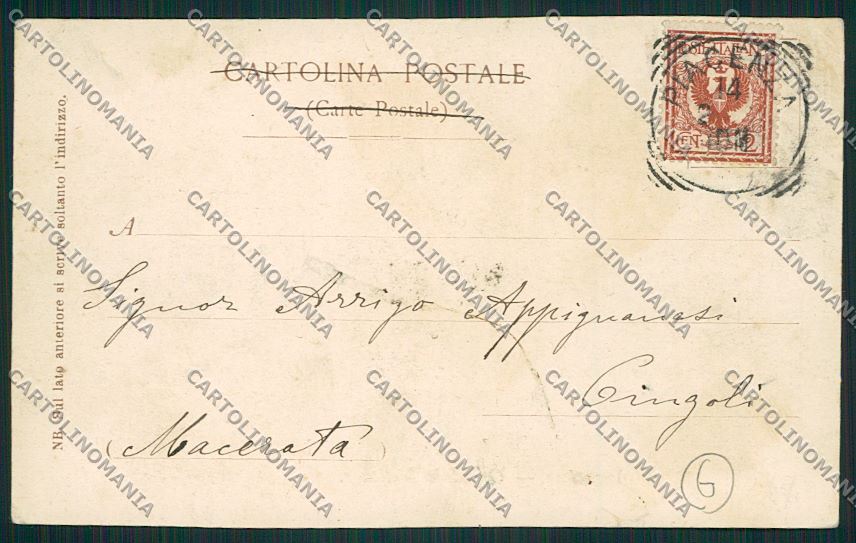 CARTOLINA POSTALE
(Carte Postale)
POSTE ITALIANE
PIACENZA
14
2
NB. Sul lato anteriore si scrive soltanto l'indirizzo.
A
Signor Arrigo Appignanesi
Cingoli
(Macerata)
6
CARTOLINOMANIA